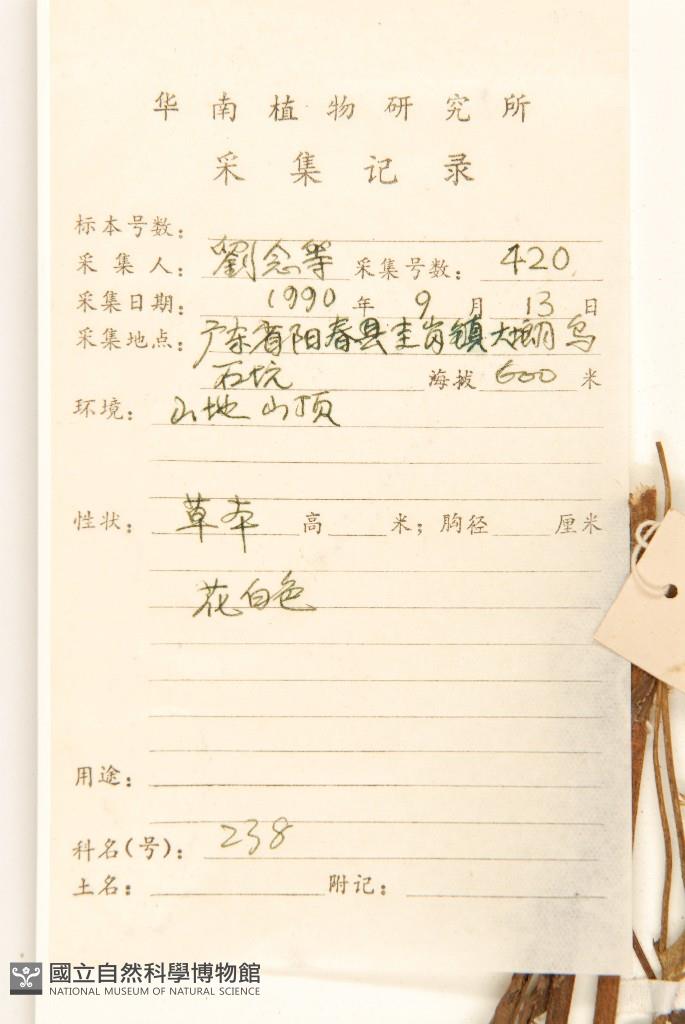 华南植物研究所
采集记录
标本号数：
采集人：劉念等 采集号数：420
采集日期：1990年9月13日
采集地点：广东省阳春县圭岗镇大塱乌
石坑 海拔600米
环境：山地山顶
性状：草本 高 米；胸径 厘米
花白色
用途：
科名(号)：238
土名： 附记：
國立自然科學博物館
NATIONAL MUSEUM OF NATURAL SCIENCE